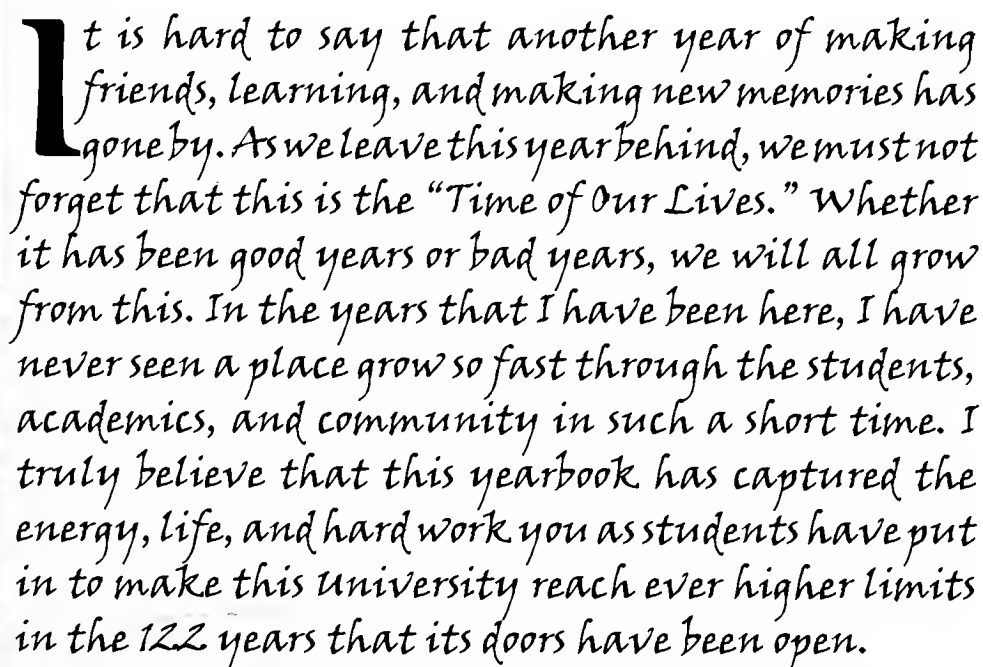 It is hard to say that another year of making
friends, learning, and making new memories has
gone by. As we leave this year behind, we must not
forget that this is the "Time of Our Lives." Whether
it has been good years or bad years, we will all grow
from this. In the years that I have been here, I have
never seen a place grow so fast through the students,
academics, and community in such a short time. I
truly believe that this yearbook has captured the
energy, life, and hard work you as students have put
in to make this University reach ever higher limits
in the 122 years that its doors have been open.